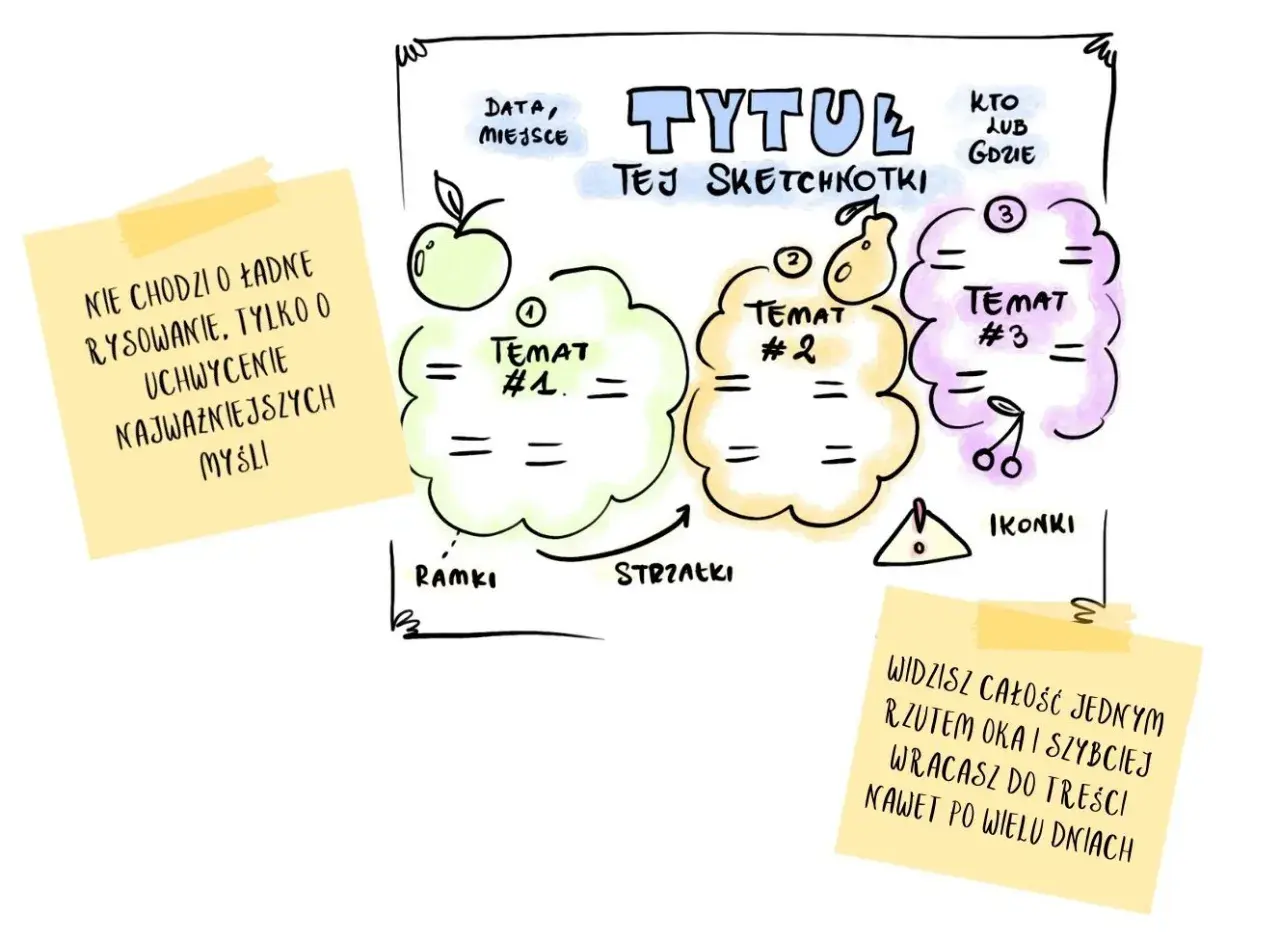 DATA,
MIEJSCE
TYTUŁ
TEJ SKETCHNOTKI
KTO
LUB
GDZIE
NIE CHODZI O ŁADNE
RYSOWANIE, TYLKO O
UCHWYCENIE
NAJWAŻNIEJSZYCH
MYŚLI
1
TEMAT
#1.
2
TEMAT
#2
3
TEMAT
#3
RAMKI
STRZAŁKI
!
IKONKI
WIDZISZ CAŁOŚĆ JEDNYM
RZUTEM OKA I SZYBCIEJ
WRACASZ DO TREŚCI
NAWET PO WIELU DNIACH